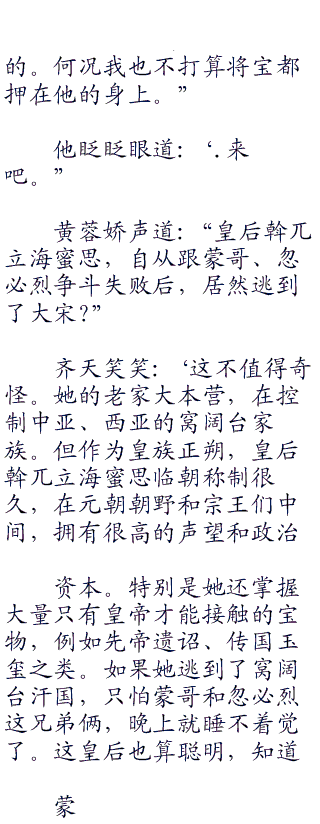 的。何况我也不打算将宝都
押在他的身上。”
他眨眨眼道：‘.来
吧。”
黄蓉娇声道：“皇后斡兀
立海蜜思，自从跟蒙哥、忽
必烈争斗失败后，居然逃到
了大宋?”
齐天笑笑：‘这不值得奇
怪。她的老家大本营，在控
制中亚、西亚的窝阔台家
族。但作为皇族正朔，皇后
斡兀立海蜜思临朝称制很
久，在元朝朝野和宗王们中
间，拥有很高的声望和政治
资本。特别是她还掌握
大量只有皇帝才能接触的宝
物，例如先帝遗诏、传国玉
玺之类。如果她逃到了窝阔
台汗国，只怕蒙哥和忽必烈
这兄弟俩，晚上就睡不着觉
了。这皇后也算聪明，知道
蒙